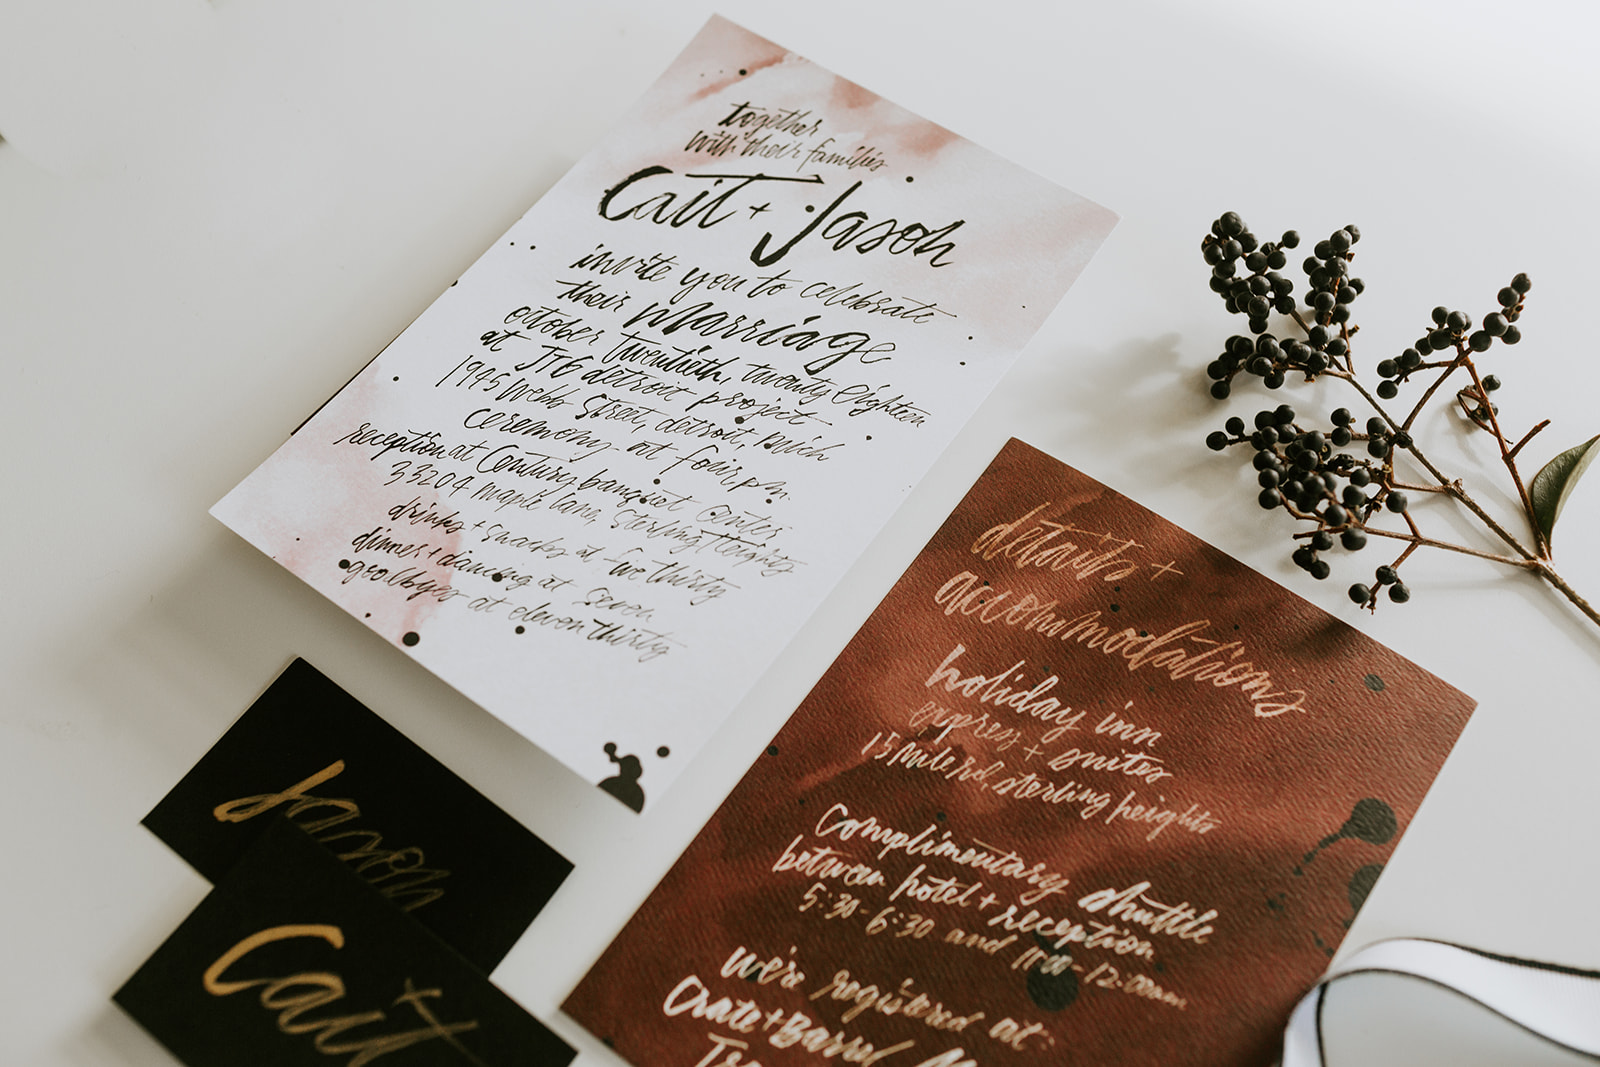 together
with their families
Cait + Jason
invite you to celebrate
their marriage
october twentieth, twenty eighteen
at JT6 detroit project
1995 Webb Street, detroit, mich
ceremony at four, pm
reception at Century banquet center
33204 maple lane, Sterling Heights
drinks + snacks at five thirty
dinner + dancing at seven
goodbyes at eleven thirty
details +
accommodations
holiday inn
express + suites
15 mile rd, sterling heights
Complimentary shuttle
between hotel + reception
5:30-6:30 and 11:00-12:00am
we're registered at:
Crate + Barrel
Jason
Cait